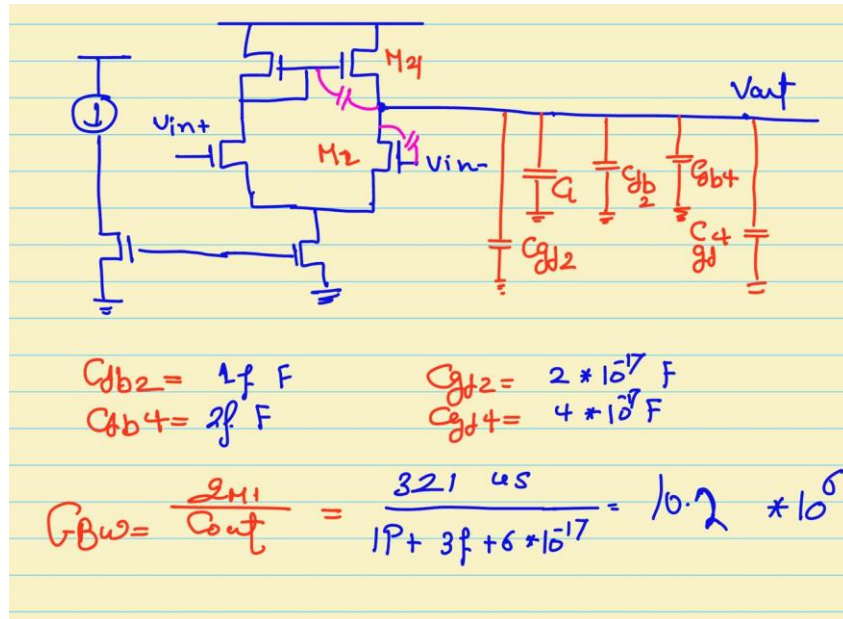 I
M4
Vout
Vin+
M2
Vin-
CL
Cdb2
Cdb4
Cgd2
Cgd4
Cdb2 = 1f F
Cgd2 = 2 * 10^-17 F
Cdb4 = 2f F
Cgd4 = 4 * 10^-17 F
GBW = gM1 / Cout = 321 us / 1P + 3f + 6 * 10^-17 = 10.2 * 10^6